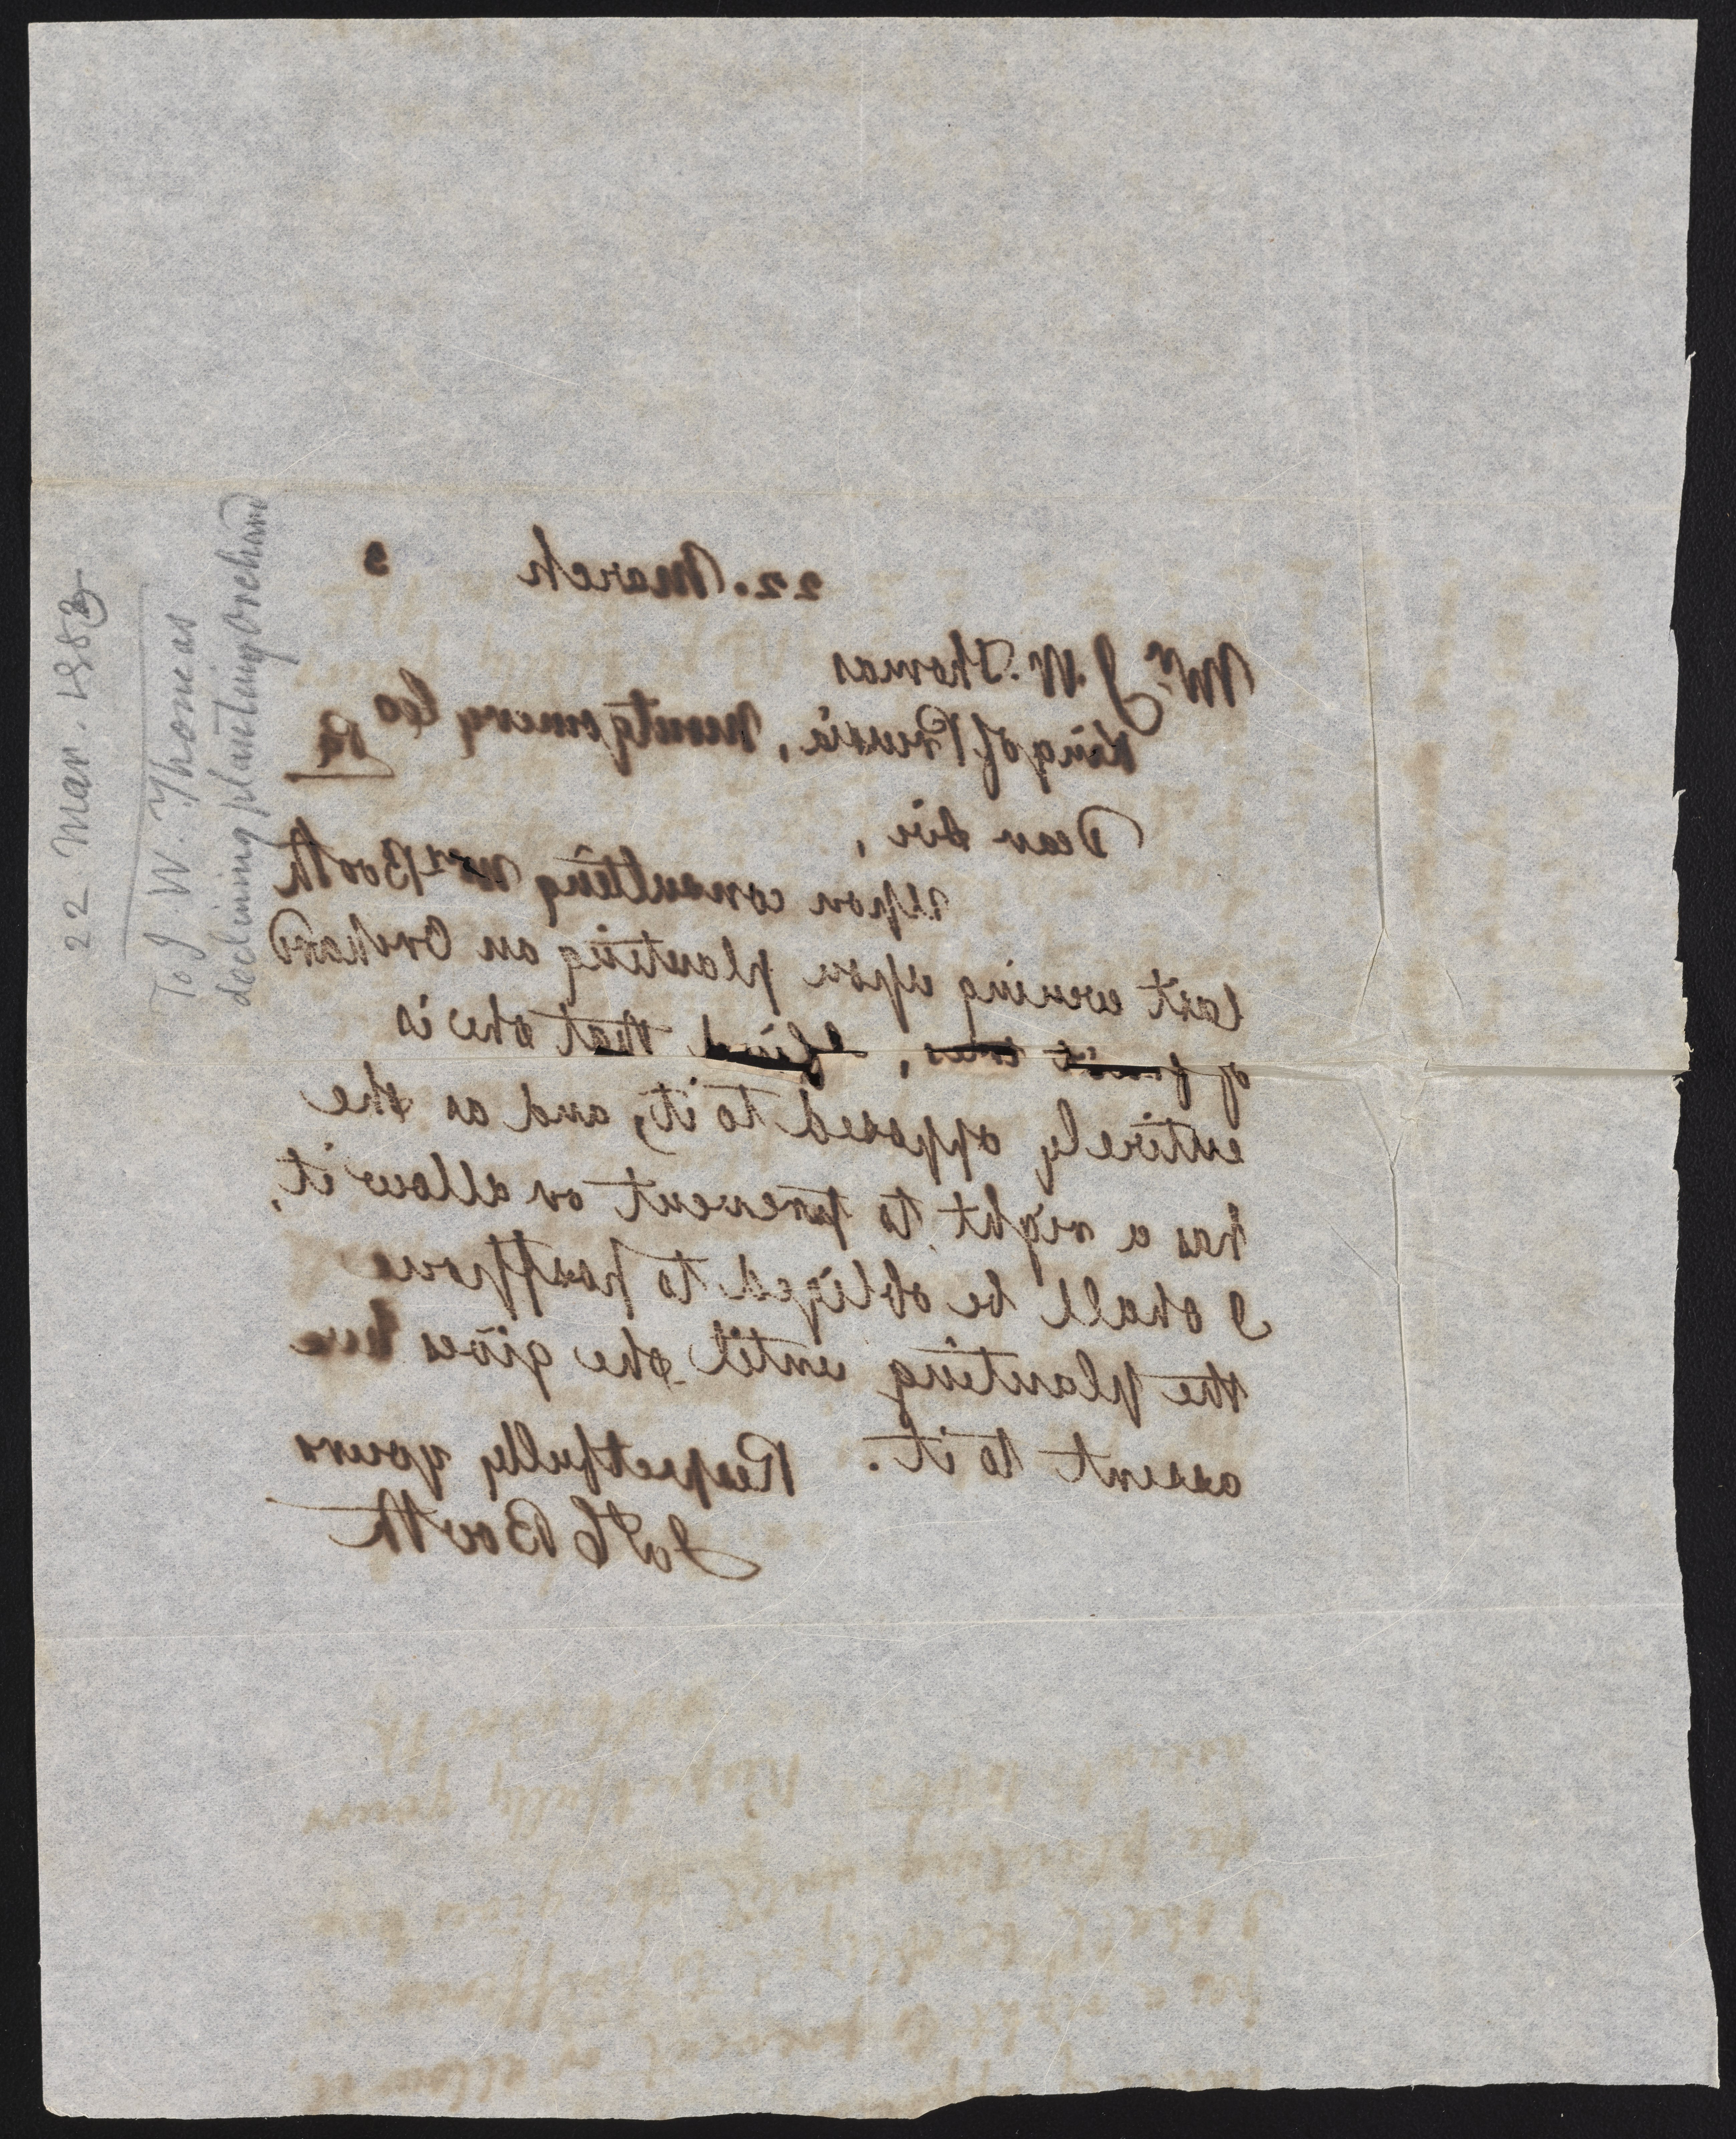 22. March 3
Mr. J. W. Thomas
King of Prussia, Montgomery Co
Pa
Dear Sir,
Upon consulting Mrs Booth
last evening upon planting an Orchard
of fruit trees, I find that she is
entirely opposed to it, and as she
has a right to prevent or allow it,
I shall be obliged to postpone
the planting until she gives her
assent to it. Respectfully yours
Jas C Booth
22. Mar. 1883
To J. W. Thomas
declining planting Orchard